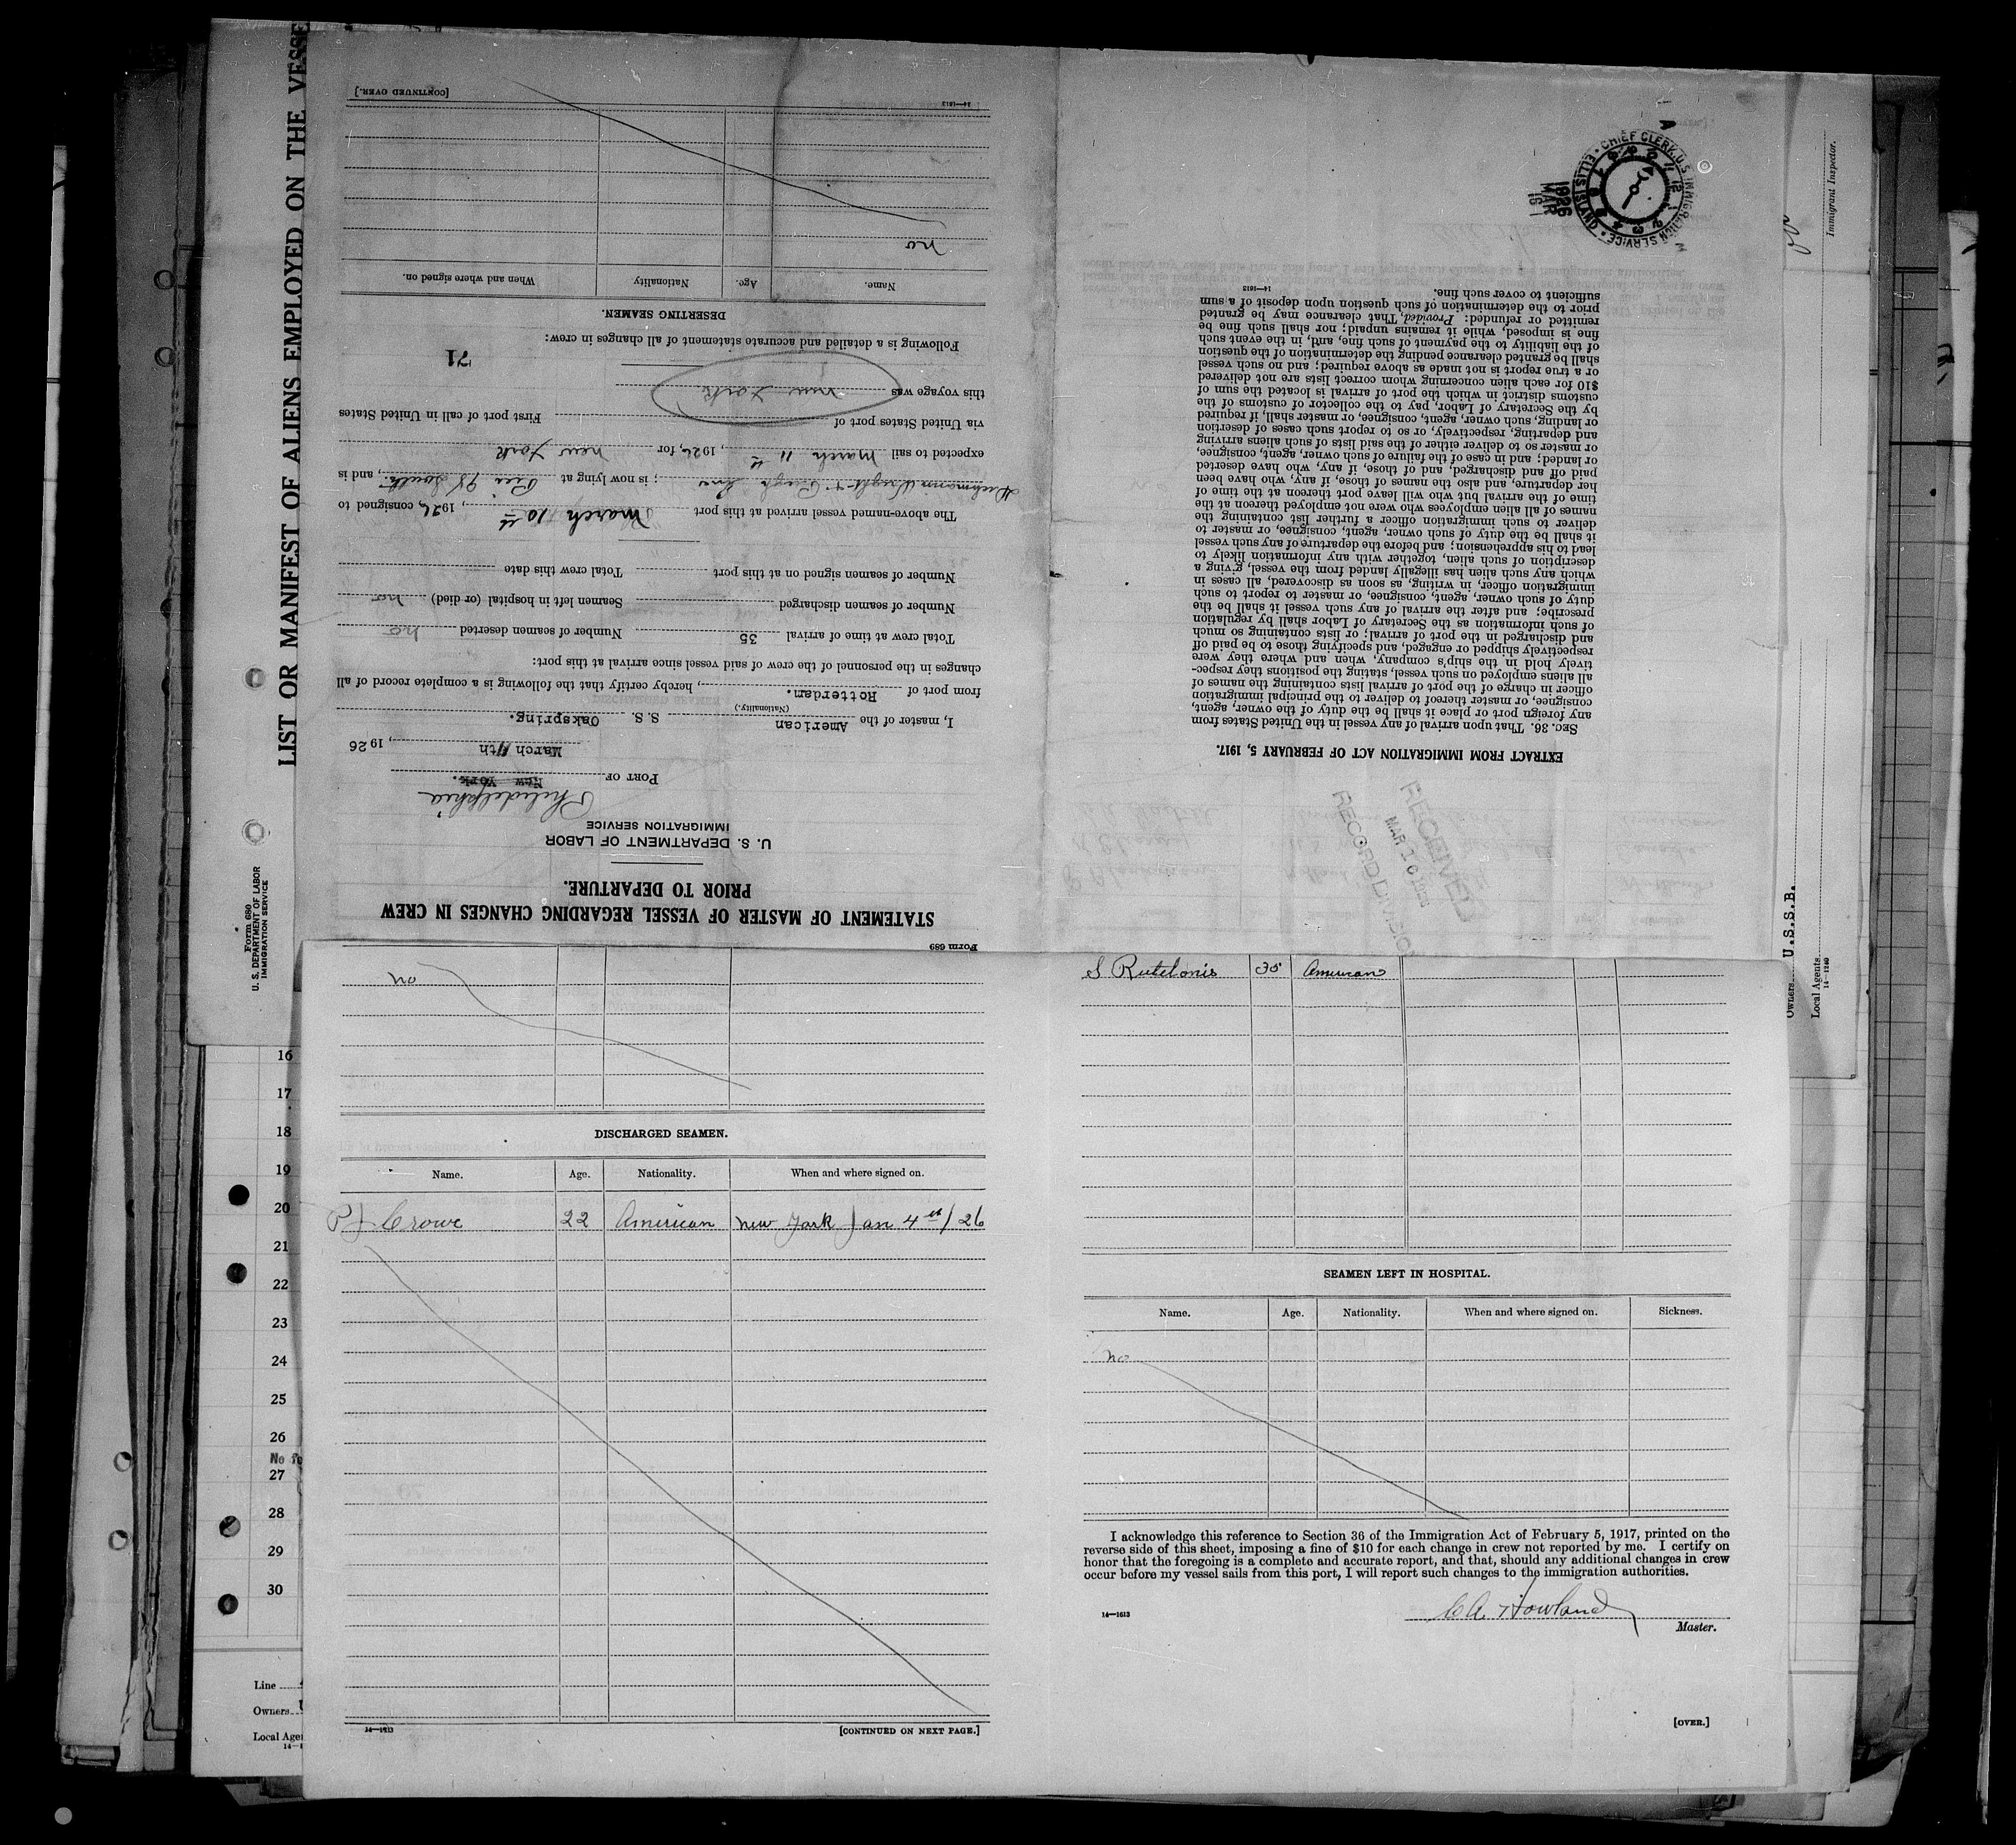 LIST OR MANIFEST OF ALIENS EMPLOYED ON THE VESSE
Form 680
U. S. DEPARTMENT OF LABOR
IMMIGRATION SERVICE
Form 689
STATEMENT OF MASTER OF VESSEL REGARDING CHANGES IN CREW
PRIOR TO DEPARTURE.
U. S. DEPARTMENT OF LABOR
IMMIGRATION SERVICE
Philadelphia
PORT OF New York.
March 11th, 1926
I, master of the American S. S. Oakspring.
(Nationality.)
from port of Rotterdam., hereby certify that the following is a complete record of all
changes in the personnel of the crew of said vessel since arrival at this port:
Total crew at time of arrival 35 Number of seamen deserted no
Number of seamen discharged Seamen left in hospital (or died) no
Number of seamen signed on at this port Total crew this date
The above-named vessel arrived at this port March 10th, 1926, consigned to
; is now lying at Pier 98 South, and is
expected to sail March 11th, 1926, for New York
via United States port of First port of call in United States
this voyage was New York
71
Following is a detailed and accurate statement of all changes in crew:
DESERTING SEAMEN.
Name. Age. Nationality When and where signed on.
no
14—1613 [CONTINUED OVER.]
EXTRACT FROM IMMIGRATION ACT OF FEBRUARY 5, 1917.
SEC. 36. That upon arrival of any vessel in the United States from
any foreign port or place it shall be the duty of the owner, agent,
consignee, or master thereof to deliver to the principal immigration
officer in charge of the port of arrival lists containing the names of
all aliens employed on such vessel, stating the positions they respec-
tively hold in the ship's company, when and where they were
respectively shipped or engaged, and specifying those to be paid off
and discharged in the port of arrival; or lists containing so much
of such information as the Secretary of Labor shall by regulation
prescribe; and after the arrival of any such vessel it shall be the
duty of such owner, agent, consignee, or master to report to such
immigration officer, in writing, as soon as discovered, all cases in
which any such alien has illegally landed from the vessel, giving a
description of such alien, together with any information likely to
lead to his apprehension; and before the departure of any such vessel
it shall be the duty of such owner, agent, consignee, or master to
deliver to such immigration officer a further list containing the
names of all alien employees who were not employed thereon at the
time of the arrival but who will leave port thereon at the time of
her departure, and also the names of those, if any, who have been
paid off and discharged, and of those, if any, who have deserted
or landed; and in case of the failure of such owner, agent, consignee,
or master so to deliver either of the said lists of such aliens arriving
and departing, respectively, or so to report such cases of desertion
or landing, such owner, agent, consignee, or master shall, if required
by the Secretary of Labor, pay to the collector of customs of the
customs district in which the port of arrival is located the sum of
$10 for each alien concerning whom correct lists are not delivered
or a true report is not made as above required; and no such vessel
shall be granted clearance pending the determination of the question
of the liability to the payment of such fine, and, in the event such
fine is imposed, while it remains unpaid; nor shall such fine be
remitted or refunded: Provided, That clearance may be granted
prior to the determination of such question upon deposit of a sum
sufficient to cover such fine.
14—1613
CHIEF CLERK, U.S. IMMIGRATION SERVICE • ELLIS ISLAND
1926
MAR
RECEIVED
MAR 10 1926
RECORD DIVISION
Immigrant Inspector.
Owners U.S.S.B.
Local Agents
14—1240
no
DISCHARGED SEAMEN.
Name. Age. Nationality. When and where signed on.
P J Crowe 22 American New York Jan 4th/26
14—1613 [CONTINUED ON NEXT PAGE.]
S Rutelonis 35 American
SEAMEN LEFT IN HOSPITAL.
Name. Age. Nationality. When and where signed on. Sickness.
no
I acknowledge this reference to Section 36 of the Immigration Act of February 5, 1917, printed on the
reverse side of this sheet, imposing a fine of $10 for each change in crew not reported by me. I certify on
honor that the foregoing is a complete and accurate report, and that, should any additional changes in crew
occur before my vessel sails from this port, I will report such changes to the immigration authorities.
C A Howland
14—1613 Master.
[OVER.]
16
17
18
19
20
21
22
23
24
25
26
No fo
27
28
29
30
Line
Owners
Local Age